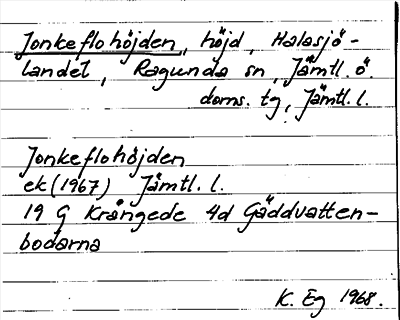 Jonkeflohöjden, höjd, Halasjö-
landet, Ragunda sn, Jämtl. ö.
doms. tg, Jämtl. l.
Jonkeflohöjden
ek (1967) Jämtl. l.
19 G Krångede 4d Gäddvatten-
bodarna
K. Eg 1968.